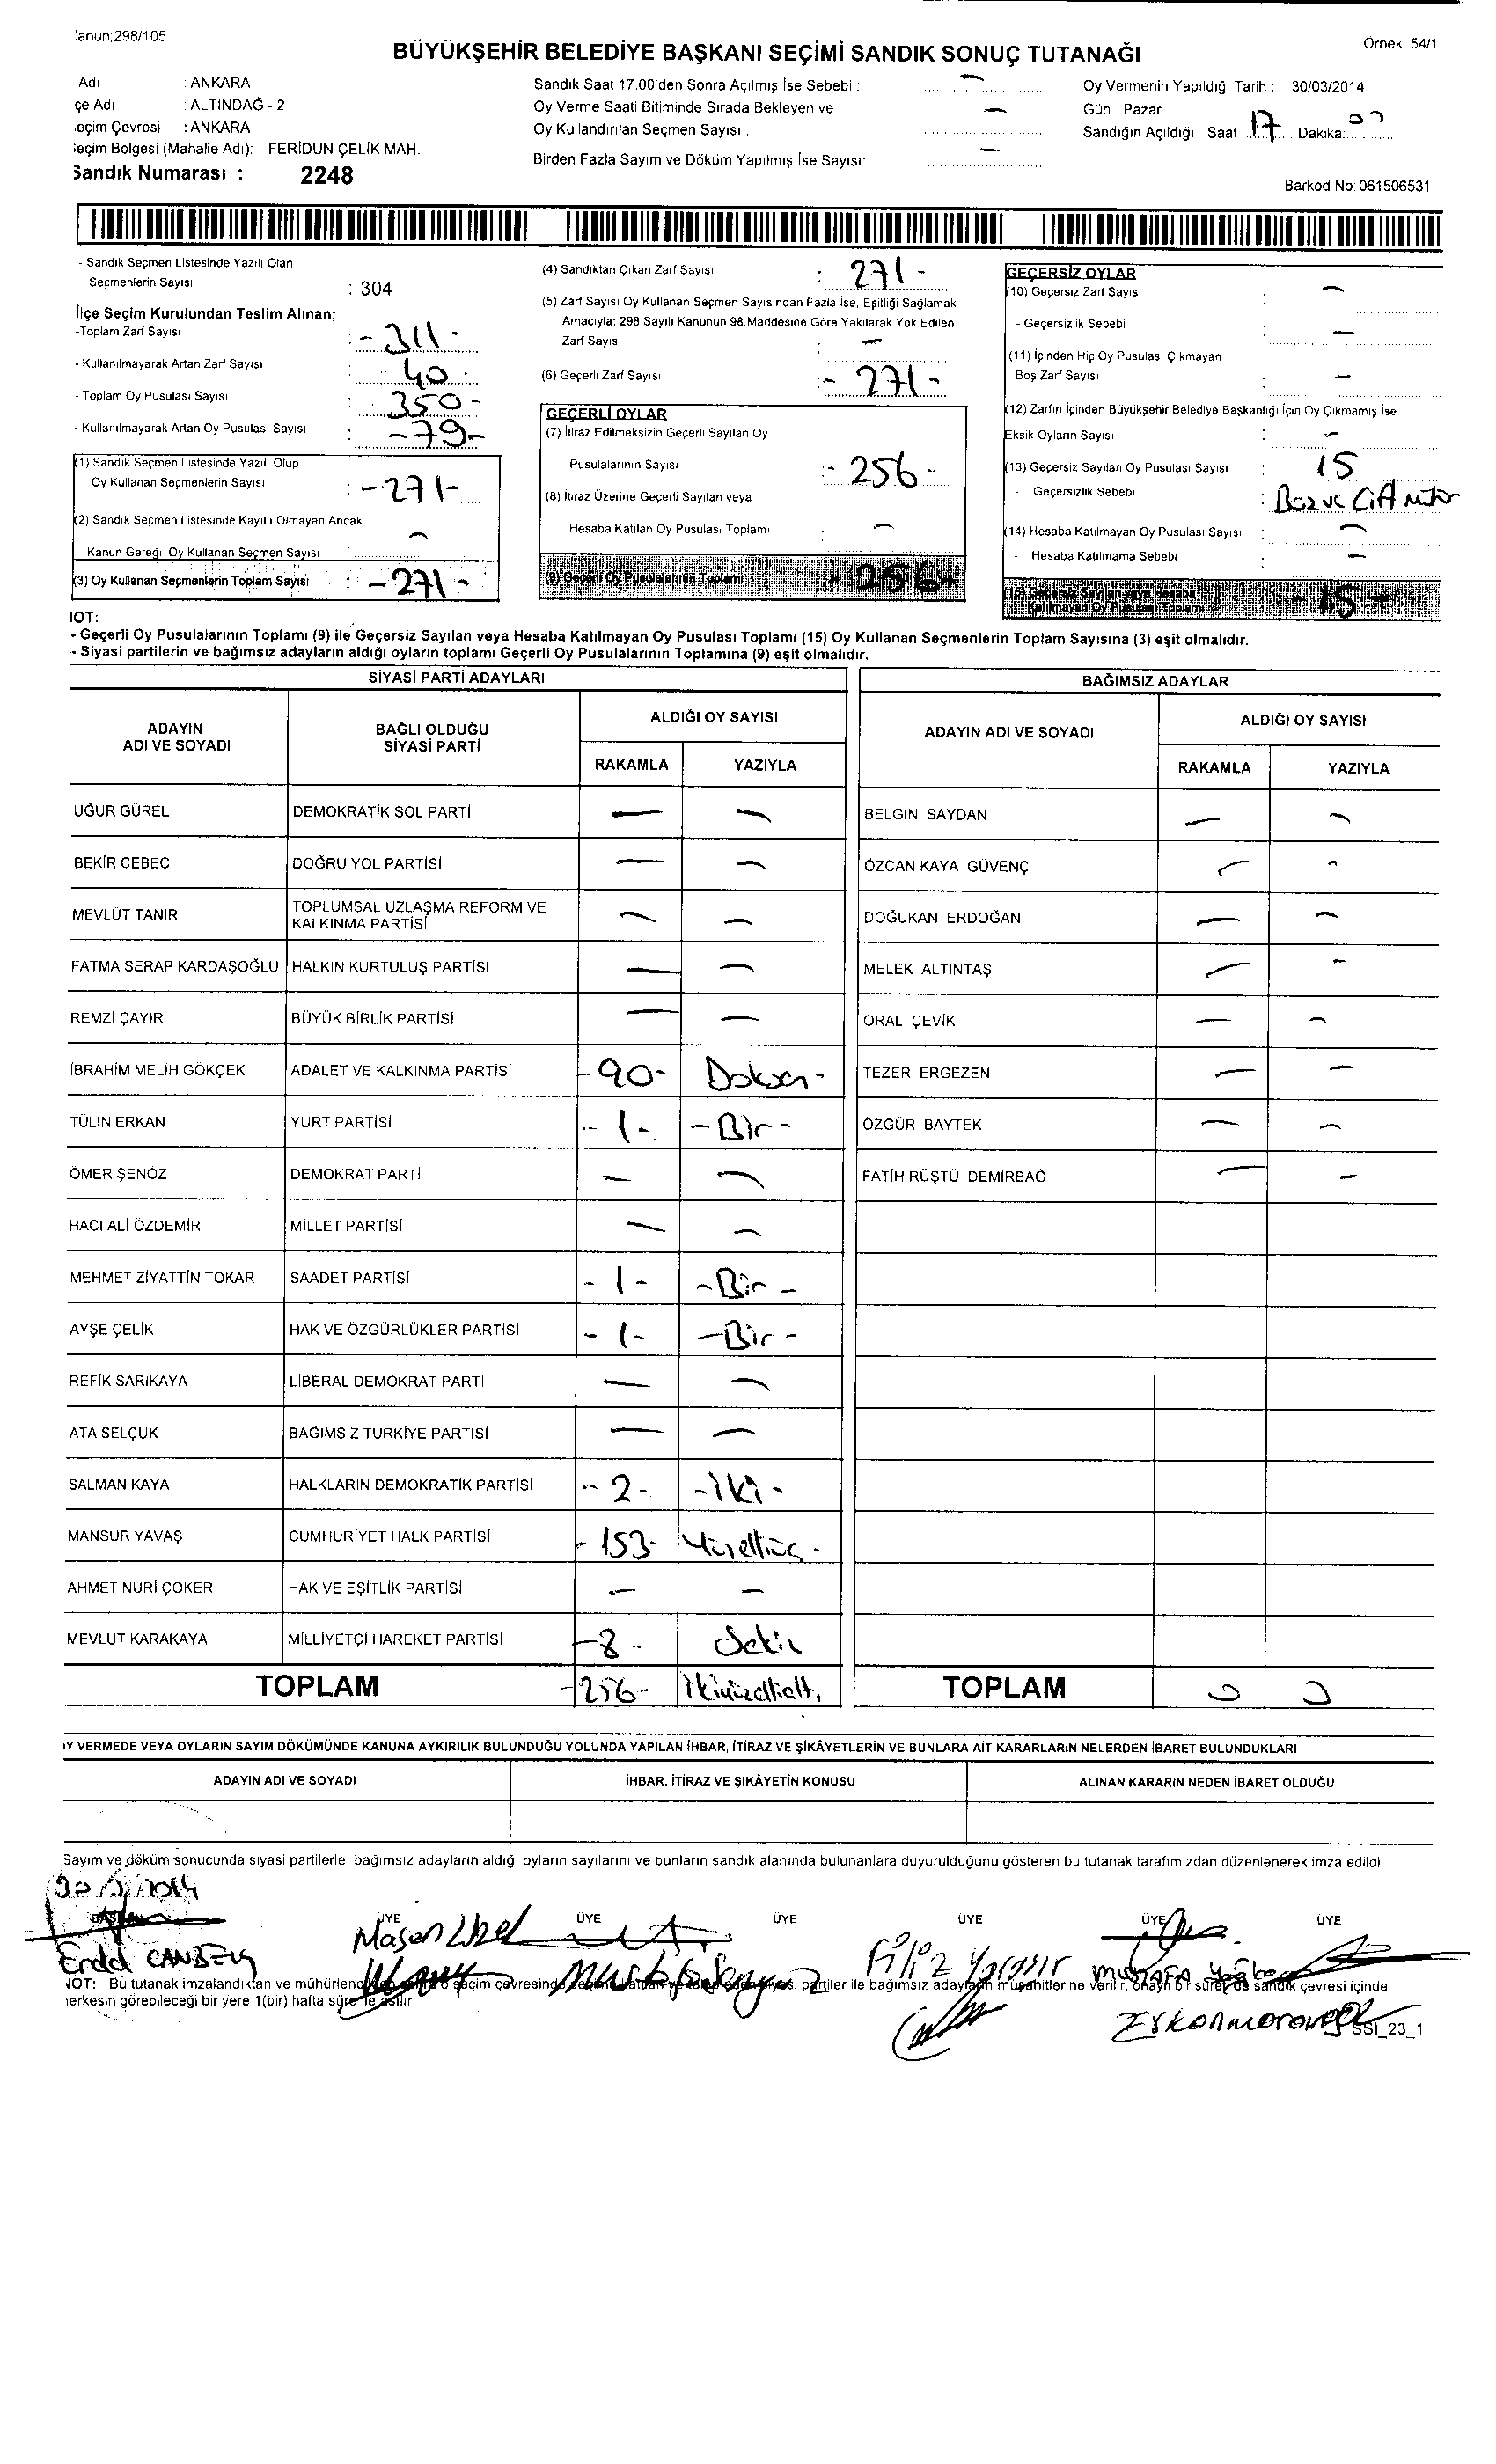 :anun;298/105
Örnek: 54/1
BÜYÜKŞEHİR BELEDİYE BAŞKANI SEÇİMİ SANDIK SONUÇ TUTANAĞI
Adı : ANKARA
çe Adı : ALTINDAĞ - 2
eçim Çevresi : ANKARA
eçim Bölgesi (Mahalle Adı): FERİDUN ÇELİK MAH.
Sandık Numarası : 2248
Sandık Saat 17.00'den Sonra Açılmış İse Sebebi : -
Oy Verme Saati Bitiminde Sırada Bekleyen ve
Oy Kullandırılan Seçmen Sayısı : -
Birden Fazla Sayım ve Döküm Yapılmış İse Sayısı: -
Oy Vermenin Yapıldığı Tarih : 30/03/2014
Gün . Pazar
Sandığın Açıldığı Saat : 17 Dakika: 00
Barkod No: 061506531
- Sandık Seçmen Listesinde Yazılı Olan
Seçmenlerin Sayısı : 304
İlçe Seçim Kurulundan Teslim Alınan;
-Toplam Zarf Sayısı : - 311 -
- Kullanılmayarak Artan Zarf Sayısı : 40 -
- Toplam Oy Pusulası Sayısı : 350 -
- Kullanılmayarak Artan Oy Pusulası Sayısı : - 79 -
(1) Sandık Seçmen Listesinde Yazılı Olup
Oy Kullanan Seçmenlerin Sayısı : - 271 -
(2) Sandık Seçmen Listesinde Kayıtlı Olmayan Ancak
Kanun Gereği Oy Kullanan Seçmen Sayısı : -
(3) Oy Kullanan Seçmenlerin Toplam Sayısı : - 271 -
(4) Sandıktan Çıkan Zarf Sayısı : 271 -
(5) Zarf Sayısı Oy Kullanan Seçmen Sayısından Fazla İse, Eşitliği Sağlamak
Amacıyla: 298 Sayılı Kanunun 98.Maddesine Göre Yakılarak Yok Edilen
Zarf Sayısı : -
(6) Geçerli Zarf Sayısı : - 271 -
GEÇERLİ OYLAR
(7) İtiraz Edilmeksizin Geçerli Sayılan Oy
Pusulalarının Sayısı : - 256 -
(8) İtiraz Üzerine Geçerli Sayılan veya
Hesaba Katılan Oy Pusulası Toplamı : -
(9) Geçerli Oy Pusulalarının Toplamı - 256 -
GEÇERSİZ OYLAR
(10) Geçersiz Zarf Sayısı : -
- Geçersizlik Sebebi : -
(11) İçinden Hiç Oy Pusulası Çıkmayan
Boş Zarf Sayısı : -
(12) Zarfın İçinden Büyükşehir Belediye Başkanlığı İçin Oy Çıkmamış İse
Eksik Oyların Sayısı : -
(13) Geçersiz Sayılan Oy Pusulası Sayısı : 15
- Geçersizlik Sebebi :
(14) Hesaba Katılmayan Oy Pusulası Sayısı : -
- Hesaba Katılmama Sebebi : -
(15) Geçersiz Sayılan veya Hesaba
Katılmayan Oy Pusulası Toplamı - 15 -
IOT:
- Geçerli Oy Pusulalarının Toplamı (9) ile Geçersiz Sayılan veya Hesaba Katılmayan Oy Pusulası Toplamı (15) Oy Kullanan Seçmenlerin Toplam Sayısına (3) eşit olmalıdır.
- Siyasi partilerin ve bağımsız adayların aldığı oyların toplamı Geçerli Oy Pusulalarının Toplamına (9) eşit olmalıdır.
SİYASİ PARTİ ADAYLARI
ADAYIN ADI VE SOYADI BAĞLI OLDUĞU SİYASİ PARTİ ALDIĞI OY SAYISI
RAKAMLA YAZIYLA
UĞUR GÜREL DEMOKRATİK SOL PARTİ - -
BEKİR CEBECİ DOĞRU YOL PARTİSİ - -
MEVLÜT TANIR TOPLUMSAL UZLAŞMA REFORM VE KALKINMA PARTİSİ - -
FATMA SERAP KARDAŞOĞLU HALKIN KURTULUŞ PARTİSİ - -
REMZİ ÇAYIR BÜYÜK BİRLİK PARTİSİ - -
İBRAHİM MELİH GÖKÇEK ADALET VE KALKINMA PARTİSİ - 90 - Doksan -
TÜLİN ERKAN YURT PARTİSİ - 1 - - Bir -
ÖMER ŞENÖZ DEMOKRAT PARTİ - -
HACI ALİ ÖZDEMİR MİLLET PARTİSİ - -
MEHMET ZİYATTİN TOKAR SAADET PARTİSİ - 1 - - Bir -
AYŞE ÇELİK HAK VE ÖZGÜRLÜKLER PARTİSİ - 1 - - Bir -
REFİK SARIKAYA LİBERAL DEMOKRAT PARTİ - -
ATA SELÇUK BAĞIMSIZ TÜRKİYE PARTİSİ - -
SALMAN KAYA HALKLARIN DEMOKRATİK PARTİSİ - 2 - - iki -
MANSUR YAVAŞ CUMHURİYET HALK PARTİSİ - 153 - Yüzelliüç -
AHMET NURİ ÇOKER HAK VE EŞİTLİK PARTİSİ - -
MEVLÜT KARAKAYA MİLLİYETÇİ HAREKET PARTİSİ - 8 - Sekiz
TOPLAM - 256 - ikiyüzellialtı
BAĞIMSIZ ADAYLAR
ADAYIN ADI VE SOYADI ALDIĞI OY SAYISI
RAKAMLA YAZIYLA
BELGİN SAYDAN - -
ÖZCAN KAYA GÜVENÇ - -
DOĞUKAN ERDOĞAN - -
MELEK ALTINTAŞ - -
ORAL ÇEVİK - -
TEZER ERGEZEN - -
ÖZGÜR BAYTEK - -
FATİH RÜŞTÜ DEMİRBAĞ - -
TOPLAM 0 0
Y VERMEDE VEYA OYLARIN SAYIM DÖKÜMÜNDE KANUNA AYKIRILIK BULUNDUĞU YOLUNDA YAPILAN İHBAR, İTİRAZ VE ŞİKÂYETLERİN VE BUNLARA AİT KARARLARIN NELERDEN İBARET BULUNDUKLARI
ADAYIN ADI VE SOYADI İHBAR, İTİRAZ VE ŞİKÂYETİN KONUSU ALINAN KARARIN NEDEN İBARET OLDUĞU
Sayım ve döküm sonucunda siyasi partilerle, bağımsız adayların aldığı oyların sayılarını ve bunların sandık alanında bulunanlara duyurulduğunu gösteren bu tutanak tarafımızdan düzenlenerek imza edildi.
ÜYE ÜYE ÜYE ÜYE ÜYE ÜYE
Filiz
Mustafa
IOT: Bu tutanak imzalandıktan ve mühürlendikten o seçim çevresinde siyasi partiler ile bağımsız adayların müşahitlerine verilir, onaylı bir sureti de sandık çevresi içinde
erkesin görebileceği bir yere 1(bir) hafta süre ile asılır.
SSI_23_1